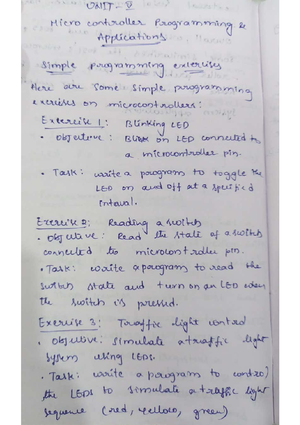 UNIT - V
Micro controller Programming &
Applications
Simple programming exercises
Here are some simple programming
exercises on microcontrollers:
Exercise 1: Blinking LED
• Objective: Blink on LED connected to
a microcontroller pin.
• Task: write a program to toggle the
LED on and off at a specified
interval.
Exercise 2: Reading a switch
• Objective: Read the state of a switch
connected to microcontroller pin.
• Task: write a program to read the
switch state and turn on an LED when
the switch is pressed.
Exercise 3: Traffic light control
• Objective: Simulate a traffic light
system using LEDs.
• Task: write a program to control
the LEDs to simulate a traffic light
sequence (red, yellow, green)